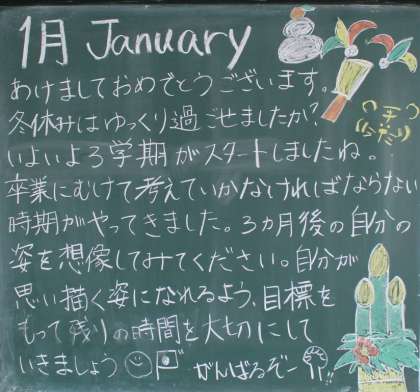 1月 January
あけましておめでとうございます。
冬休みはゆっくり過ごせましたか?
いよいよ3学期がスタートしましたね。
卒業にむけて考えていかなければならない
時期がやってきました。3ヵ月後の自分の
姿を想像してみてください。自分が
思い描く姿になれるよう、目標を
もって残りの時間を大切にして
いきましょう
がんばるぞー!!